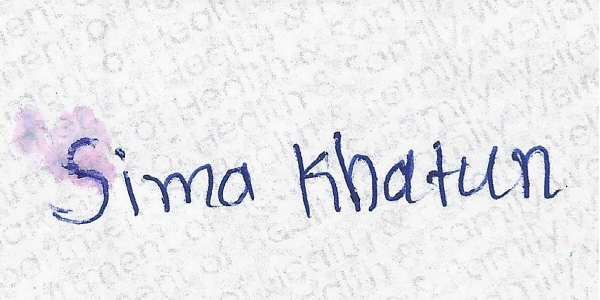 Sima Khatun